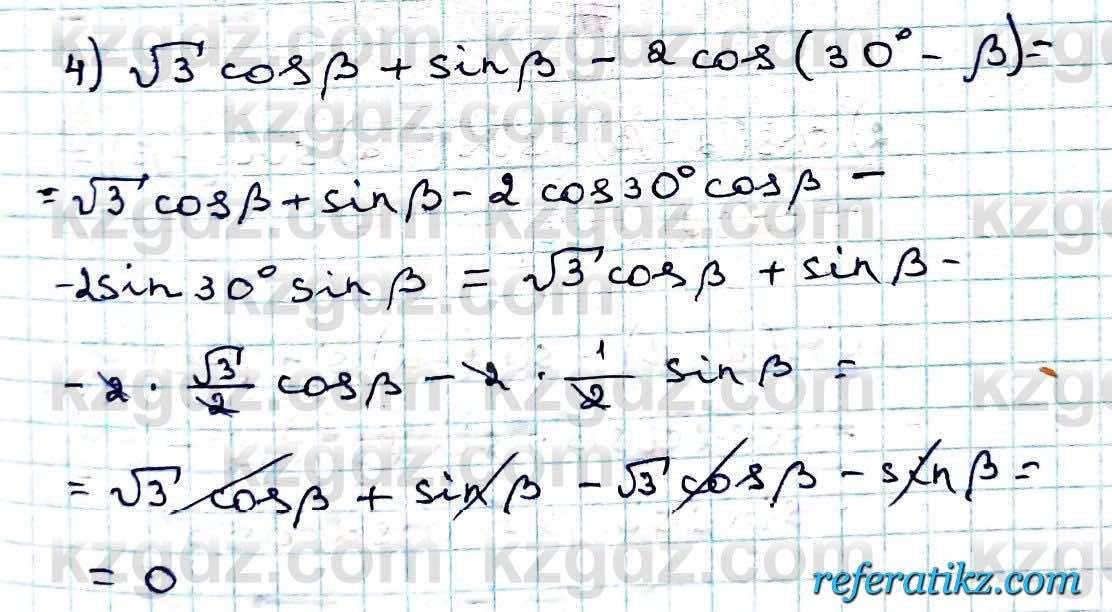 4) √3 cosβ + sinβ - 2 cos(30° - β) =
= √3 cosβ + sinβ - 2 cos30° cosβ -
- 2sin30° sinβ = √3 cosβ + sinβ -
- 2 · √3/2 cosβ - 2 · 1/2 sinβ =
= √3 cosβ + sinβ - √3 cosβ - sinβ =
= 0
referatikz.com
kzgdz.com